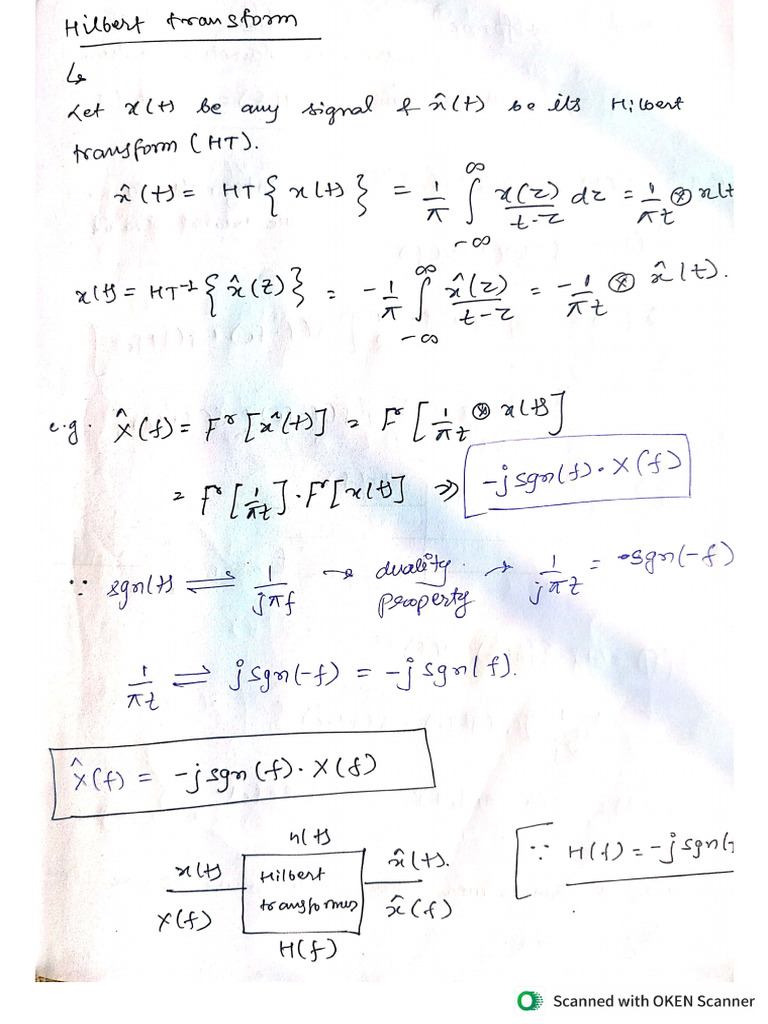 Hilbert transform
↳
Let x(t) be any signal & x̂(t) be its Hilbert
transform (HT).
x̂(t) = HT{x(t)} = 1/π ∫_{-∞}^{∞} x(τ)/(t-τ) dτ = 1/πt ⊗ x(t
x(t) = HT⁻¹{x̂(t)} = -1/π ∫_{-∞}^{∞} x̂(τ)/(t-τ) = -1/πt ⊗ x̂(t).
e.g. X̂(f) = Fʳ[x̂(t)] = Fʳ[1/πt ⊗ x(t)]
= Fʳ[1/πt] · Fʳ[x(t)] ⇒ -j sgn(f) · X(f)
∵ sgn(t) ⇌ 1/jπf → duality property → 1/jπt = sgn(-f)
1/πt ⇌ j sgn(-f) = -j sgn(f).
X̂(f) = -j sgn(f) · X(f)
h(t)
x(t) Hilbert x̂(t).
X(f) transformer x̂(f)
H(f)
[∵ H(f) = -j sgn(
Scanned with OKEN Scanner